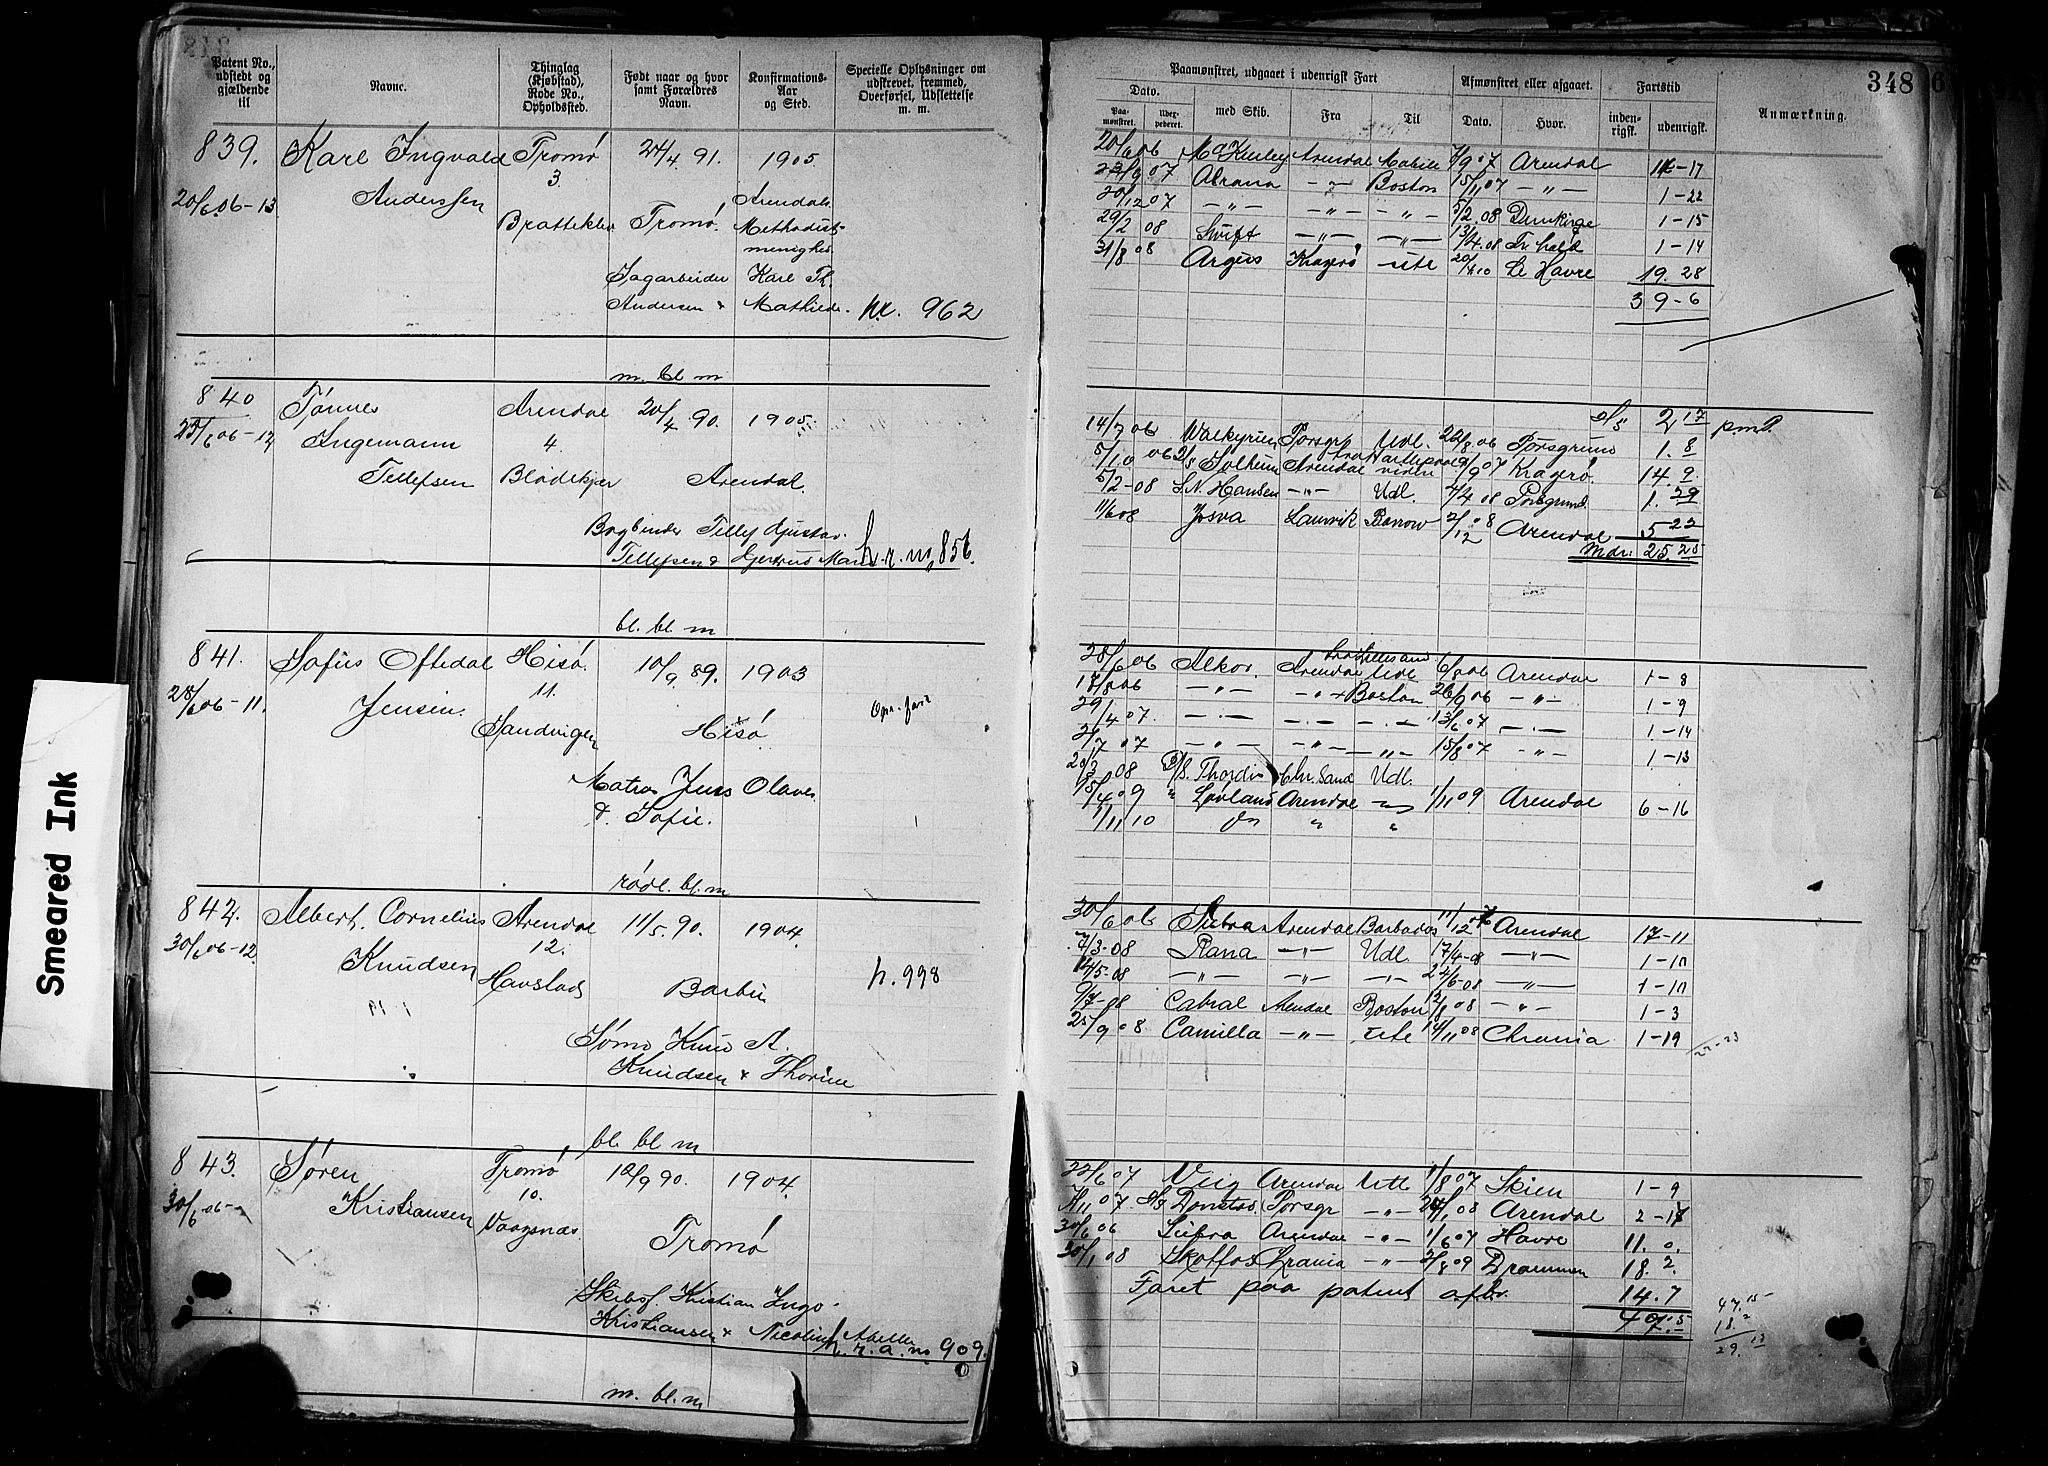 348
6
Patent No., udstedt og gjældende til
Navne.
Thinglag (Kjøbstad), Rode No., Opholdssted.
Født naar og hvor samt Forældres Navn.
Konfirmations-Aar og Sted.
Specielle Oplysninger om udskrevet, fremmed, Overførsel, Udslettelse m. m.
Paamønstret, udgaaet i udenrigsk Fart
Afmønstret eller afgaaet.
Fartstid
Anmærkning.
Dato.
Paa-mønstret.
Udex-pederet.
med Skib.
Fra
Til
Dato.
Hvor.
inden-rigsk.
udenrigsk.
839. Karl Ingvald Tromø 24/4 91. 1905.
Anderssen 3. Arendals
20/6 06-13 Brattekler Tromø. Methodist-
menighed
Sagarbeider Karl Th.
Andersen & Mathilde. nr. 962
m. bl. m
20/6 06 Mc Kinley Arendal Mobile 7/9 07 Arendal 14-17
22/9 07 Abrana -„- Boston 15/11 07 -„- 1-22
20/12 07 -„- -„- -„- 5/2 08 Dunkirge 1-15
29/2 08 Swift -„- -„- 13/4 08 Fr hald 1-14
31/8 08 Argus Kragerø ute 20/4 10 Le Havre 19.28
39-6
840 Tønnes Arendal 20/4 90. 1905.
25/6 06-12 Ingemann 4.
Tellefsen Blødekjer Arendal.
Bogbinder Tellef Gustav
Tellefsen & Gjertrud Marie h. r. no. 856.
bl. bl. m
o/s 2 17 p.m.P.
14/7 06 Walkyrien Porsgr Udl. 22/8 06 Porsgrund 1. 8
5/10 06 D/S Solheim Arendal viden 9/9 07 Kragerø. 14. 9
5/2-08 S.N. Hansen -„- Udl. 4/4 08 Porsgrund. 1. 29
11/6 08 Josva Laurvik Barrow 2/12 08 Arendal 5 22
Mdr: 25. 25
841. Sofus Oftedal Hisø. 10/9 89. 1903
28/6 06-11. Jensen. 11.
Sandvigen Hisø
Matros Jens Olaves
& Sofie.
rødl. bl. m
28/6 06 Alkor. Arendal Lillesand Udl 6/8 06 Arendal 1-8
17/8 06 -„- -„- Boston 26/9 06 -„- 1-9
29/4 07. -„- -„- -„- 13/6 07 -„- 1-14
2/7 07 -„- -„- -„- 15/8 07 -„- 1-13
20/3 08 D/S. Thordis Chr. Sand Udl.
15/4 09 „ Lovland Arendal -„- 1/11 09 Arendal 6-16
1/11 10 do „ „
842. Albert Cornelius Arendal 11/5. 90. 1904.
30/6 06-12. Knudsen 12.
Havstads Barbu h. 998
Sømd Knud A.
Knudsen & Thorine
bl. bl m
30/6 06 Subra Arendal Barbados 11/12 07 Arendal 17-11
7/3-08 Rana -„- Udl. 17/4-08 -„- 1-10
14/5-08 -„- -„- -„- 24/6-08 -„- 1-10
9/7-08 Cabral Arendal Boston 12/8 08 -„- 1-3
25/9 08 Camilla -„- ute 14/11 08 Chrania 1-19
22-23
843. Søren Tromø 12/9 90. 1904.
30/6 06- Kristiansen 10.
Vaagsnæs Tromø
Skibsf. Kristian Ingv.
Kristiansen & Nicoline Abelle h. r. a. no 909.
m. bl. m
22/6 07 Viig Arendal Utl 1/8 07 Skien 1-9
Porsgr -„- Arendal 2-17
30/6 06 Subra Arendal -„- 1/6 07 Havre 11. 0.
30/1 08 Skotfos Chrania -„- 2/8 09 Drammen 18. 2.
Faret paa patent 14. 7
47. 5
47. 15
18. 2
29. 13
Smeared Ink